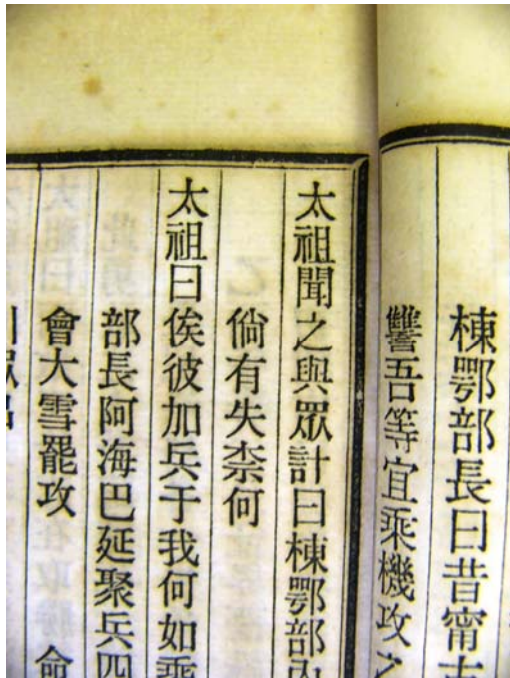 棟鄂部長曰昔甯古
讐吾等宜乘機攻之
太祖聞之與眾計曰棟鄂部內
倘有失柰何
太祖曰俟彼加兵于我何如乘
部長阿海巴延聚兵四
會大雪罷攻 命